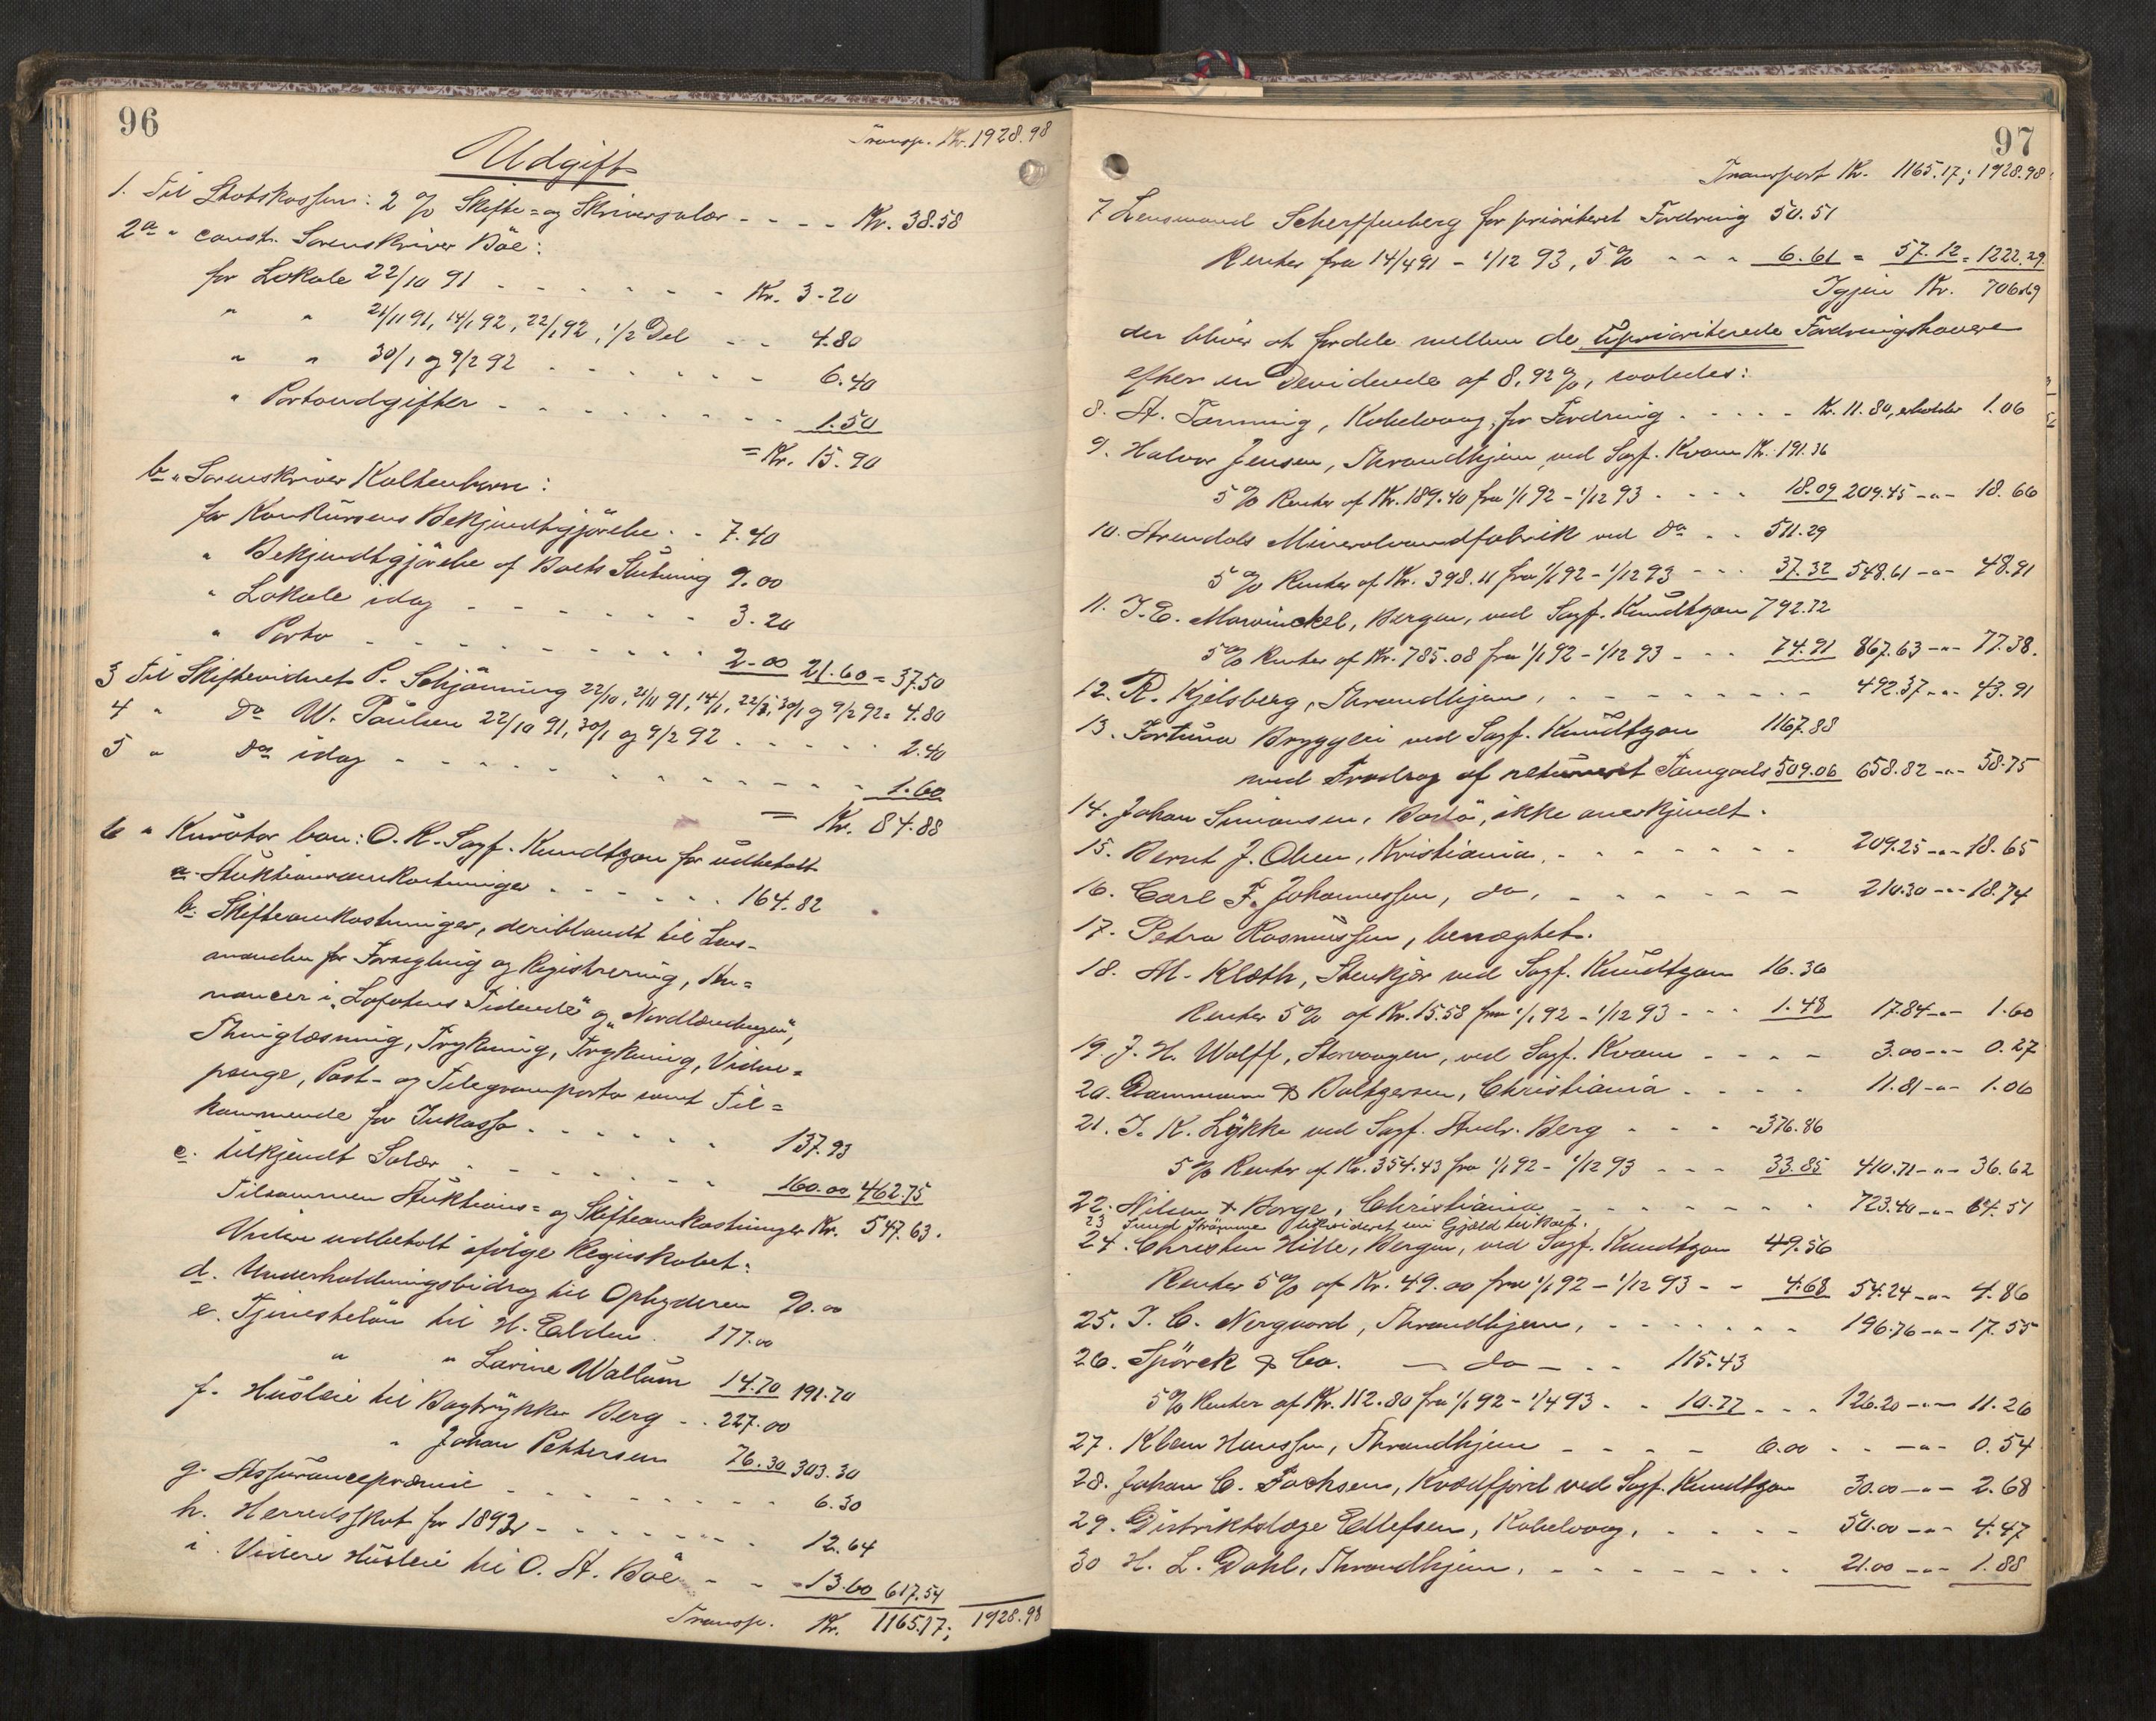 96
Transp. Kr. 1928.98
Udgift
1. Til Statskassen: 2 % Skifte= og Skriversalær - - - - Kr. 38.58
2a " const. Sorenskriver Böe:
for Lokale 22/10 91 - - - - - - - Kr. 3.20
" " 21/11 91, 14/1 92, 22/1 92, 1/2 Del - - 4.80
" " 30/1 og 9/2 92 - - - - - - 6.40
" Portoudgifter - - - - - - - - 1.50
= Kr. 15.90
b " Sorenskriver Koltenborn:
for Konkursens Bekjendtgjörelse - - 7.40
" Bekjendtgjörelse af Boets Slutning 9.00
" Lokale idag - - - - - - 3.20
" Porto - - - - - - - - - 2.00 21.60 = 37.50
3 Til Skiftevidnet P. Schjönning 22/10, 21/11 91, 14/1, 22/1, 30/1 og 9/2 92 = 4.80
4 " do W. Paulsen 22/10 91, 30/1 og 9/2 92 - - - - - 2.40
5 " do idag - - - - - - - - - - - 1.60
= Kr. 84.88
6 " Kurator bon: O.R. Sagf. Knudtzon for udbetalt
a. Auktionsomkostninger - - - - - 164.82
b. Skifteomkostninger, deriblandt til Lens-
manden for Forsegling og Registrering, An=
noncer i "Lofotens Tidende" og "Nordlændingen",
Thinglæsning, Trykning, Trykning, Vidne=
penge, Post- og Telegramporto samt Til=
kommende for Inkasso - - - - - - 137.93
c. tilkjendt Salær - - - - - - - 160.00 462.75
Tilsammen Auktions= og Skifteomkostninger Kr. 547.63.
Videre udbetalt ifølge Regnskabet:
d. Underholdningsbidrag til Opbyderen 90.00
e. Tjenesteløn til H. Elden - 177.00
" " Lavine Wallum 14.70 191.70
f. Husleie til Bogtrykker Berg - - 227.00
" Johan Pettersen 76.30 303.30
g. Assurancepræmie - - - - - - - - 6.30
h. Herredsskat for 1892 - - - - - - - 12.64
i. Videre Husleie til O. A. Böe - - 13.60 617.54
Transp. Kr. 1165.17; 1928.98
97
Transport Kr. 1165.17; 1928.98
7 Lensmand Scherffenberg for prioriteret Fordring 50.51
Renter fra 14/4 91 - 1/12 93, 5% - - - 6.61 = 57.12 = 1222.29
Igjen Kr. 706.69
der bliver at fordele mellem de uprioriterede Fordringshavere
efter en Devidende af 8,92%, saaledes:
8. A. Tanning, Kabelvaag, for Fordring - - - - - Kr. 11.80, erholder 1.06
9. Halvor Jensen, Throndhjem ved Sagf. Kvam Kr. 191.36
5% Renter af Kr. 189.40 fra 1/1 92 - 1/12 93 - - - - 18.09 209.45 -"- 18.66
10. Arendals Mineralvandfabrik ved do - - 511.29
5% Renter af Kr. 398.11 fra 1/1 92 - 1/12 93 - - - 37.32 548.61 -"- 48.91
11. J. E. Mowinckel, Bergen, ved Sagf. Knudtzon 792.72
5% Renter af Kr. 785.08 fra 1/1 92 - 1/12 93 - - - 74.91 867.63 -"- 77.38.
12. R. Kjelsberg, Throndhjem, - - - - - - - - - 492.37 -"- 43.91
13. Fortuna Bryggeri ved Sagf. Knudtzon 1167.88
med Fradrag af returneret Tomgods 509.06 658.82 -"- 58.75
14. Johan Simonsen, Bodø, ikke anerkjendt.
15. Bernt J. Olsen, Kristiania, - - - - - - - 209.25 -"- 18.65
16. Carl F. Johannessen, do, - - - - - - 210.30 -"- 18.74
17. Petra Rasmussen, benægtet.
18. M. Klæth, Stenkjær ved Sagf. Knudtzon 16.36
Renter 5% af Kr. 15.58 fra 1/1 92 - 1/12 93 - - - 1.48 17.84 -"- 1.60
19. J. H. Wolff, Storvaagen, ved Sagf. Kvam - - - - 3.00 -"- 0.27
20. Dammann & Baltzersen, Christiania - - - - 11.81 -"- 1.06
21. J. K. Lykke ved Sagf. Andr. Berg - - - - 376.86
5% Renter af Kr. 354.43 fra 1/1 92 - 1/12 93 - - - 33.85 410.71 -"- 36.62
22. Nilsen & Borge, Christiania - - - - - - - 723.40 -"- 64.51
23 Smed Strömme likvideret mod Gjæld til Boet.
24. Christian Hille, Bergen, ved Sagf. Knudtzon 49.56
Renter 5% af Kr. 49.00 fra 1/1 92 - 1/12 93 - - 4.68 54.24 -"- 4.86
25. J. C. Norgaard, Throndhjem, - - - - - - - 196.76 -"- 17.55
26. Spörck & Co. - do - - - 115.43
5% Renter af Kr. 112.80 fra 1/1 92 - 1/4 93 - - 10.77 - - - 126.20 -"- 11.26
27. Klaus Hanssen, Throndhjem - - - - - 6.00 - - -"- 0.54
28. Johan C. Jachsen, Kvædfjord ved Sagf. Knudtzon 30.00 -"- 2.68
29. Distriktslæge Ellefsen, Kabelvaag, - - - - - 50.00 -"- 4.47
30 H. L. Dahl, Throndhjem, - - - - - - - 21.00 -"- 1.88